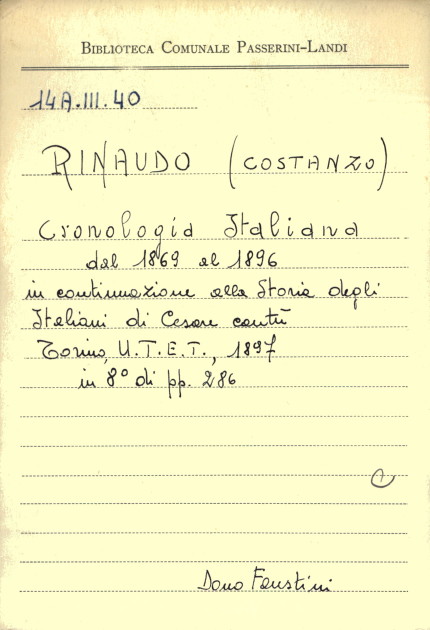 BIBLIOTECA COMUNALE PASSERINI-LANDI
14A.III.40
RINAUDO (COSTANZO)
Cronologia Italiana
dal 1869 al 1896
in continuazione alla Storia degli
Italiani di Cesare Cantù
Torino, U.T.E.T., 1897
in 8° di pp. 286
Dono Faustini